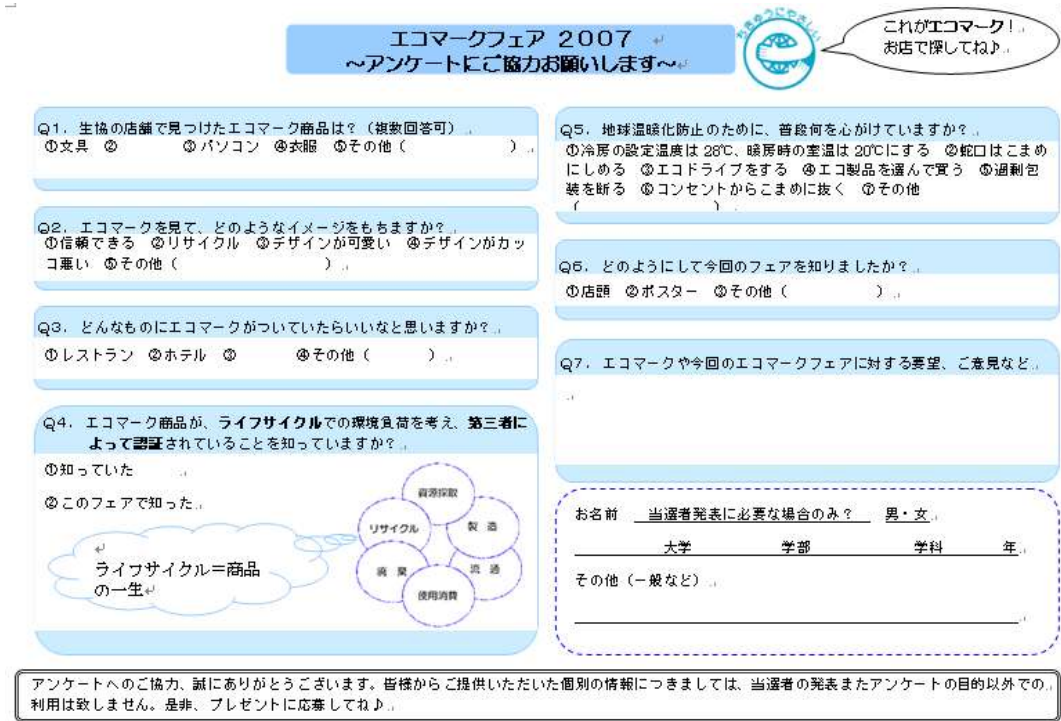 エコマークフェア 2007
~アンケートにご協力お願いします~
ちきゅうにやさしい
これがエコマーク!
お店で探してね♪
Q1. 生協の店舗で見つけたエコマーク商品は?(複数回答可)
①文具 ② ③パソコン ④衣服 ⑤その他( )
Q2. エコマークを見て、どのようなイメージをもちますか?
①信頼できる ②リサイクル ③デザインが可愛い ④デザインがカッ
コ悪い ⑤その他( )
Q3. どんなものにエコマークがついていたらいいなと思いますか?
①レストラン ②ホテル ③ ④その他( )
Q4. エコマーク商品が、ライフサイクルでの環境負荷を考え、第三者に
よって認証されていることを知っていますか?
①知っていた
②このフェアで知った
ライフサイクル=商品
の一生
資源採取
製 造
流 通
使用消費
廃 棄
リサイクル
Q5. 地球温暖化防止のために、普段何を心がけていますか?
①冷房の設定温度は28℃、暖房時の室温は20℃にする ②蛇口はこまめ
にしめる ③エコドライブをする ④エコ製品を選んで買う ⑤過剰包
装を断る ⑥コンセントからこまめに抜く ⑦その他
( )
Q6. どのようにして今回のフェアを知りましたか?
①店頭 ②ポスター ③その他( )
Q7. エコマークや今回のエコマークフェアに対する要望、ご意見など
お名前 当選者発表に必要な場合のみ? 男・女
大学 学部 学科 年
その他(一般など)
アンケートへのご協力、誠にありがとうございます。皆様からご提供いただいた個別の情報につきましては、当選者の発表またアンケートの目的以外での
利用は致しません。是非、プレゼントに応募してね♪